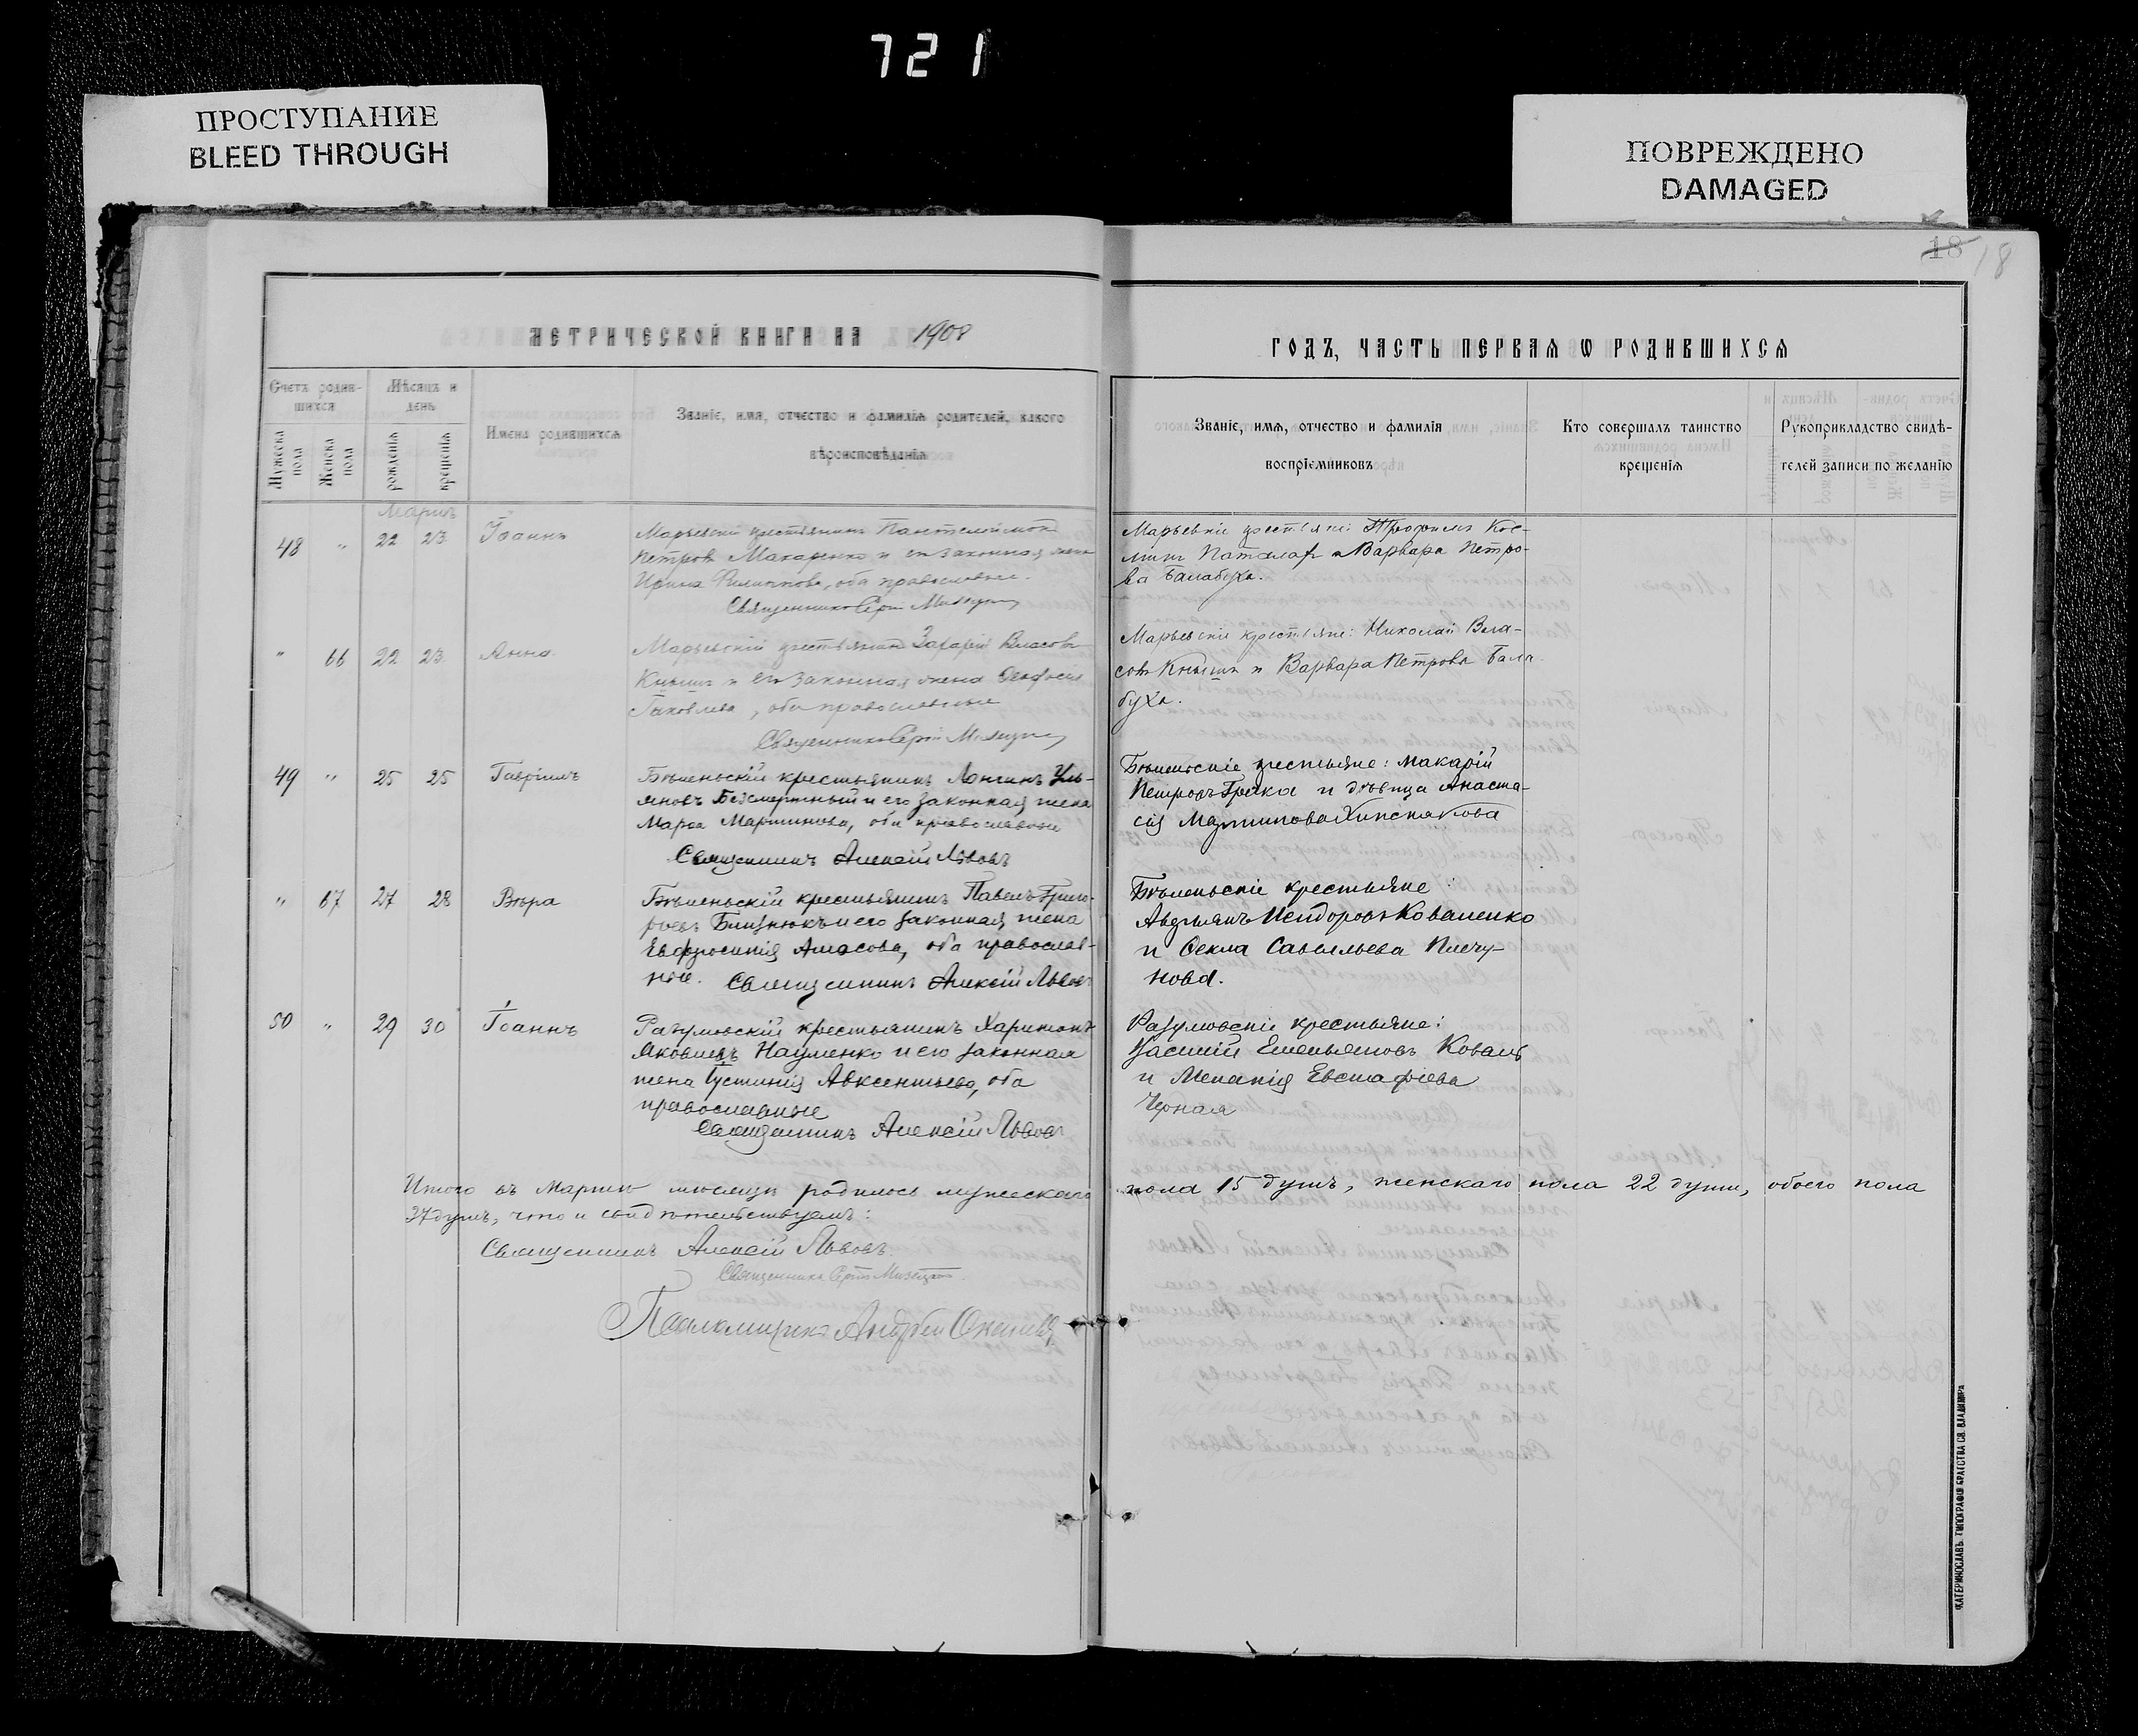 721
ПРОСТУПАНИЕ
BLEED THROUGH
ПОВРЕЖДЕНО
DAMAGED
18 18
МЕТРИЧЕСКОЙ КНИГИ НА 1908
ГОДЪ, ЧАСТЬ ПЕРВАЯ Ѡ РОДИВШИХСЯ
Счетъ родив-
шихся
Мужеска пола
Женска пола
Мѣсяцъ и
день
рожденія
крещенія
Имена родившихся
Званіе, имя, отчество и фамилія родителей, какого
вѣроисповѣданія
Званіе, имя, отчество и фамилія
воспріемниковъ
Кто совершалъ таинство
крещенія
Рукоприкладство свидѣ-
телей записи по желанію
Мартъ
48 " 22 23 Іоаннъ
Марьевскій крестьянинъ Пантелеимонъ
Петровъ Макаренко и его законная жена
Ирина Филиппова, оба православные.
Священникъ Сергій
Марьевскіе крестьяне: Трофимъ Кос-
минъ и Варвара Петро-
ва Балабуха.
" 66 22 23 Анна
Марьевскій крестьянинъ Захарій Власовъ
Кнышъ и его законная жена Ѳеодосія
Іаковлева, оба православные
Священникъ Сергій
Марьевскіе крестьяне: Николай Вла-
совъ Кнышъ и Варвара Петрова Бала
буха.
49 " 25 25 Гавріилъ
Бѣленьскій крестьянинъ Лонгинъ Улья-
новъ Безсмертный и его законная жена
Марѳа Мартинова, оба православные
Священникъ Алексій Львовъ
Бѣленьскіе крестьяне: Макарій
Петровъ и дѣвица Анаста-
сія Мартинова
" 67 27 28 Вѣра
Бѣленьскій крестьянинъ Павелъ Григо-
рьевъ Близнюкъ и его законная жена
Евфросинія Амосова, оба православ-
ные. Священникъ Алексій Львовъ
Бѣленьскіе крестьяне:
Авдѣянъ Исидоровъ Коваленко
и Ѳекла Савельева Плечу-
нова.
50 " 29 30 Іоаннъ
Разумовскій крестьянинъ Харитонъ
Яковлевъ Науменко и его законная
жена Іустинія Авксентьева, оба
православные
Священникъ Алексій Львовъ
Разумовскіе крестьяне:
Василій Емельяновъ Коваль
и Меланія Евстафіева
Черная
Итого въ Мартѣ мѣсяцѣ родилось мужескаго пола 15 душъ, женскаго пола 22 души, обоего пола
37 душъ, что и свидѣтельствуемъ:
Священникъ Алексій Львовъ.
Священникъ Сергій
Псаломщикъ Андрей
ЕКАТЕРИНОСЛАВЪ. ТИПОГРАФІЯ БРАТСТВА СВ. ВЛАДИМІРА